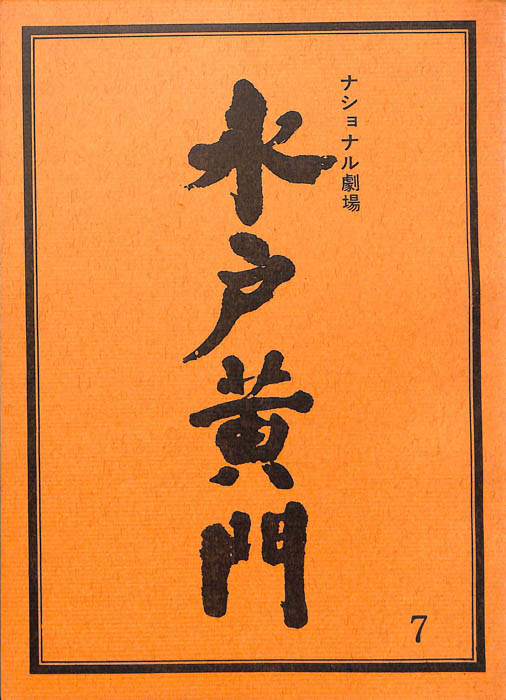 ナショナル劇場
水戸黄門
7